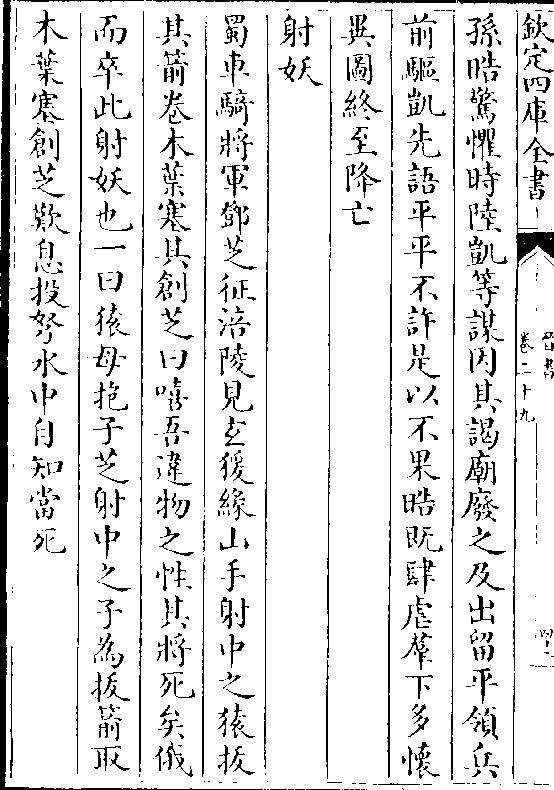 欽定四庫全書
晉書
卷二十九
孫晧驚懼時陸凱等謀因其謁廟廢之及出留平領兵
前驅凱先語平平不許是以不果晧既肆虐羣下多懷
異圖終至降亡
射妖
蜀車騎將軍鄧芝征涪陵見玄猨緣山手射中之猿拔
其箭卷木葉塞其創芝曰嘻吾違物之性其將死矣俄
而卒此射妖也一曰猿母抱子芝射中之子為拔箭取
木葉塞創芝歎息投弩水中自知當死